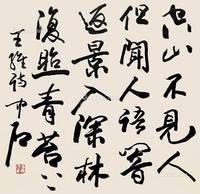 空山不見人
但聞人語響
返景入深林
復照青苔上
王維詩中石